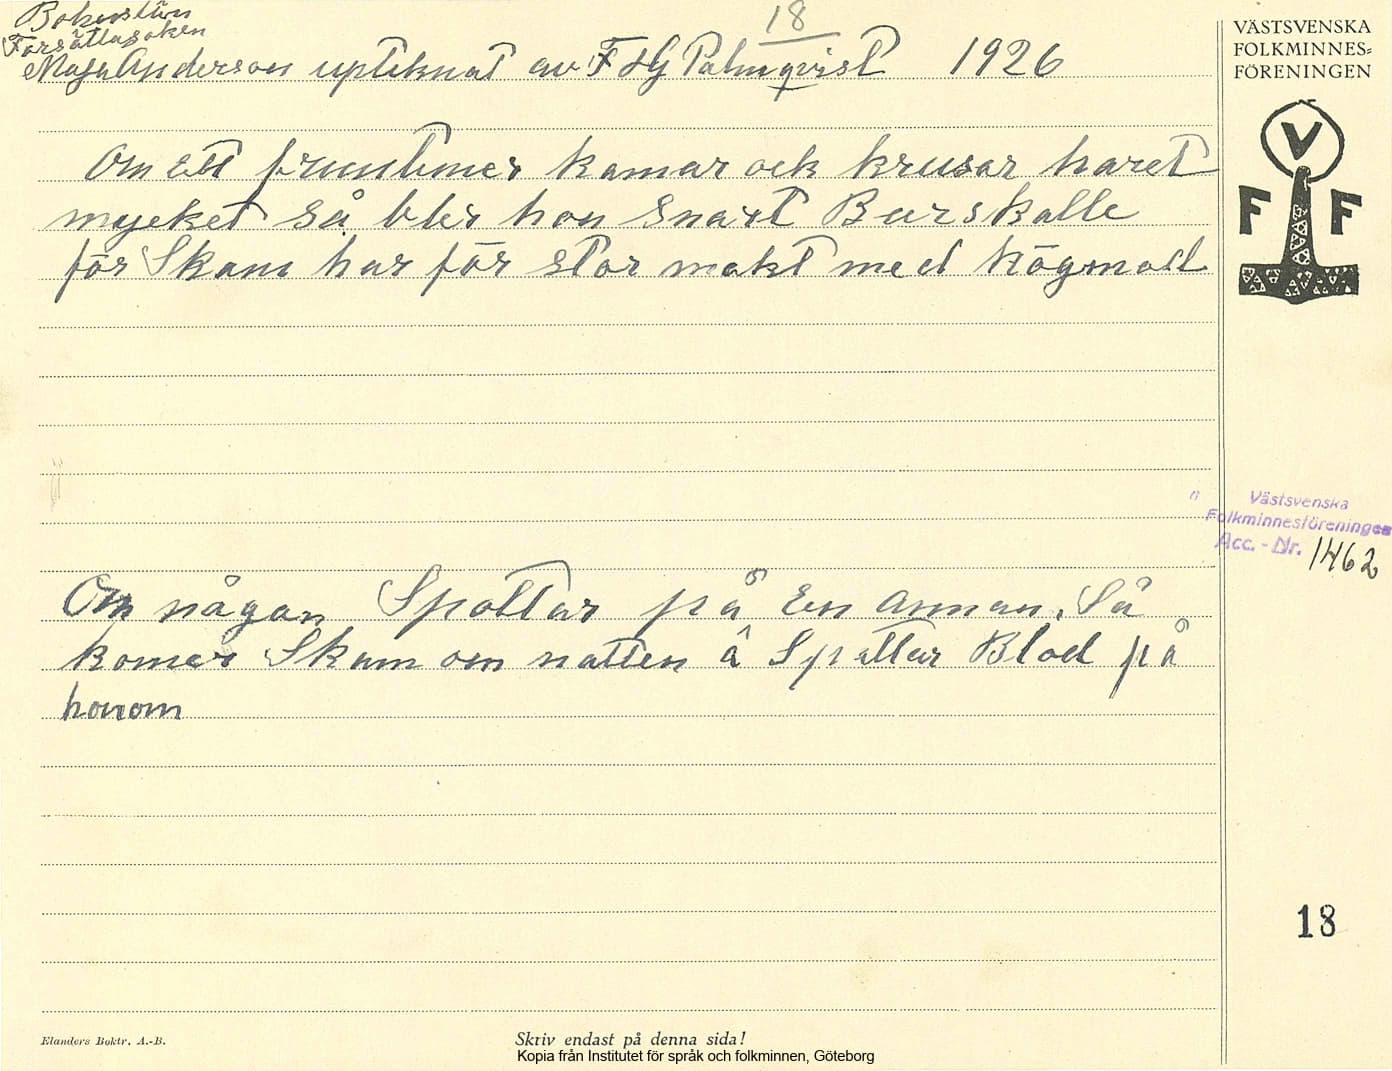 Bohuslän
Forsättasoken
18
Maja Anderson upteknat av F HG Palmqvist 1926
Om ett fruntimer kamar ock krusar haret
mycket så blir hon snart Burskalle
för Skam har för stor makt med högmod
Om någon Spottar på En annan. Så
komer Skam om natten å Spottar Blod på
honom
VÄSTSVENSKA
FOLKMINNES=
FÖRENINGEN
V
F F
Västsvenska
Folkminnesföreningen
Acc. - Nr. 1462
18
Elanders Boktr. A.-B.
Skriv endast på denna sida!
Kopia från Institutet för språk och folkminnen, Göteborg